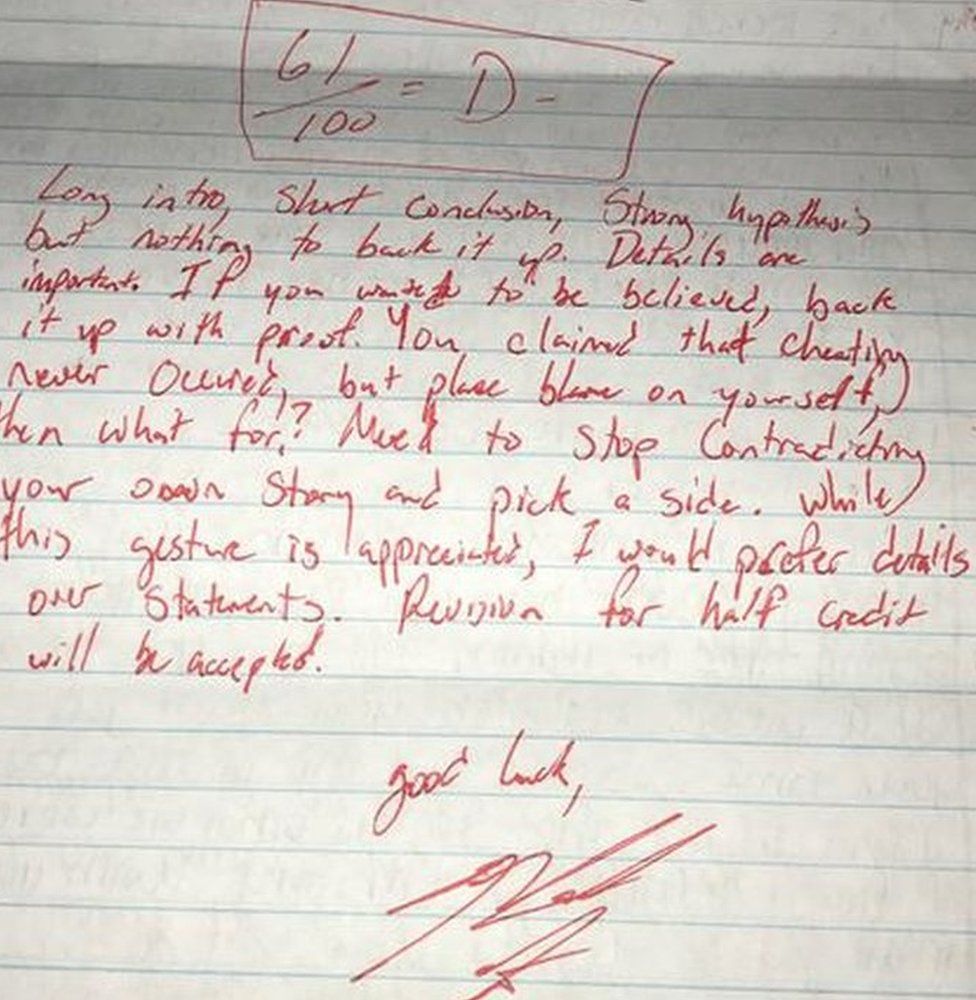 61/100 = D-
Long intro, Short conclusion, Strong hypothesis
but nothing to back it up. Details are
important. If you wanted to be believed, back
it up with proof. You claimed that cheating
never Occured, but place blame on yourself,
then what for? Need to Stop Contradicting
your own Story and pick a side. While
this gesture is appreciated, I would prefer details
over Statements. Revision for half credit
will be accepted.
good luck,